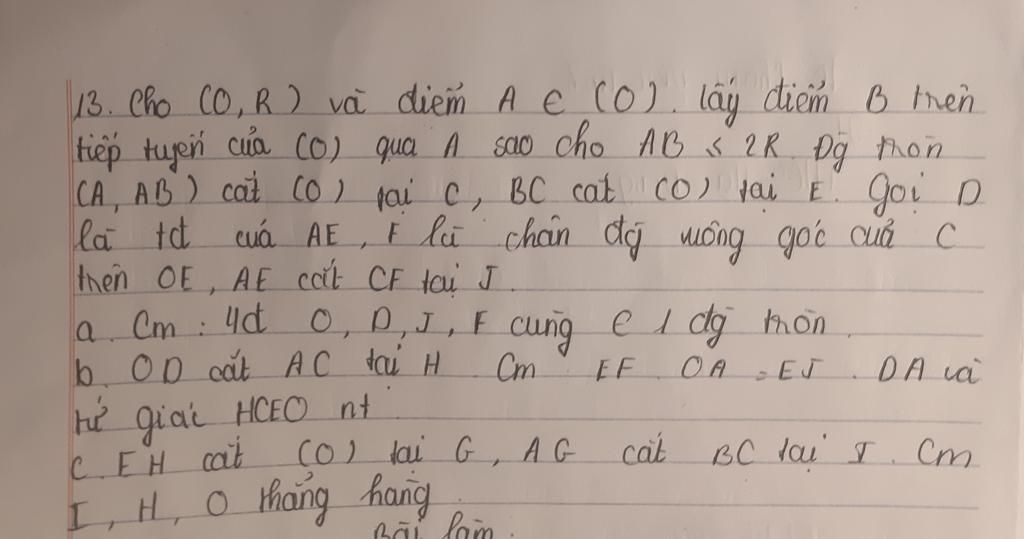 13. Cho (O,R) và điểm A ∈ (O). lấy điểm B trên
tiếp tuyến của (O) qua A sao cho AB < 2R. Đg tròn
(A, AB) cắt (O) tại C, BC cắt (O) tại E. Gọi D
là tđ của AE, F là chân đg vuông góc của C
trên OE, AE cắt CF tại J.
a. Cm : 4đ O, D, J, F cùng ∈ 1 đg tròn.
b. OD cắt AC tại H. Cm EF. OA = EJ. DA và
tứ giác HCEO nt.
c. EH cắt (O) tại G, AG cắt BC tại I. Cm
I, H, O thẳng hàng.
Bài làm.